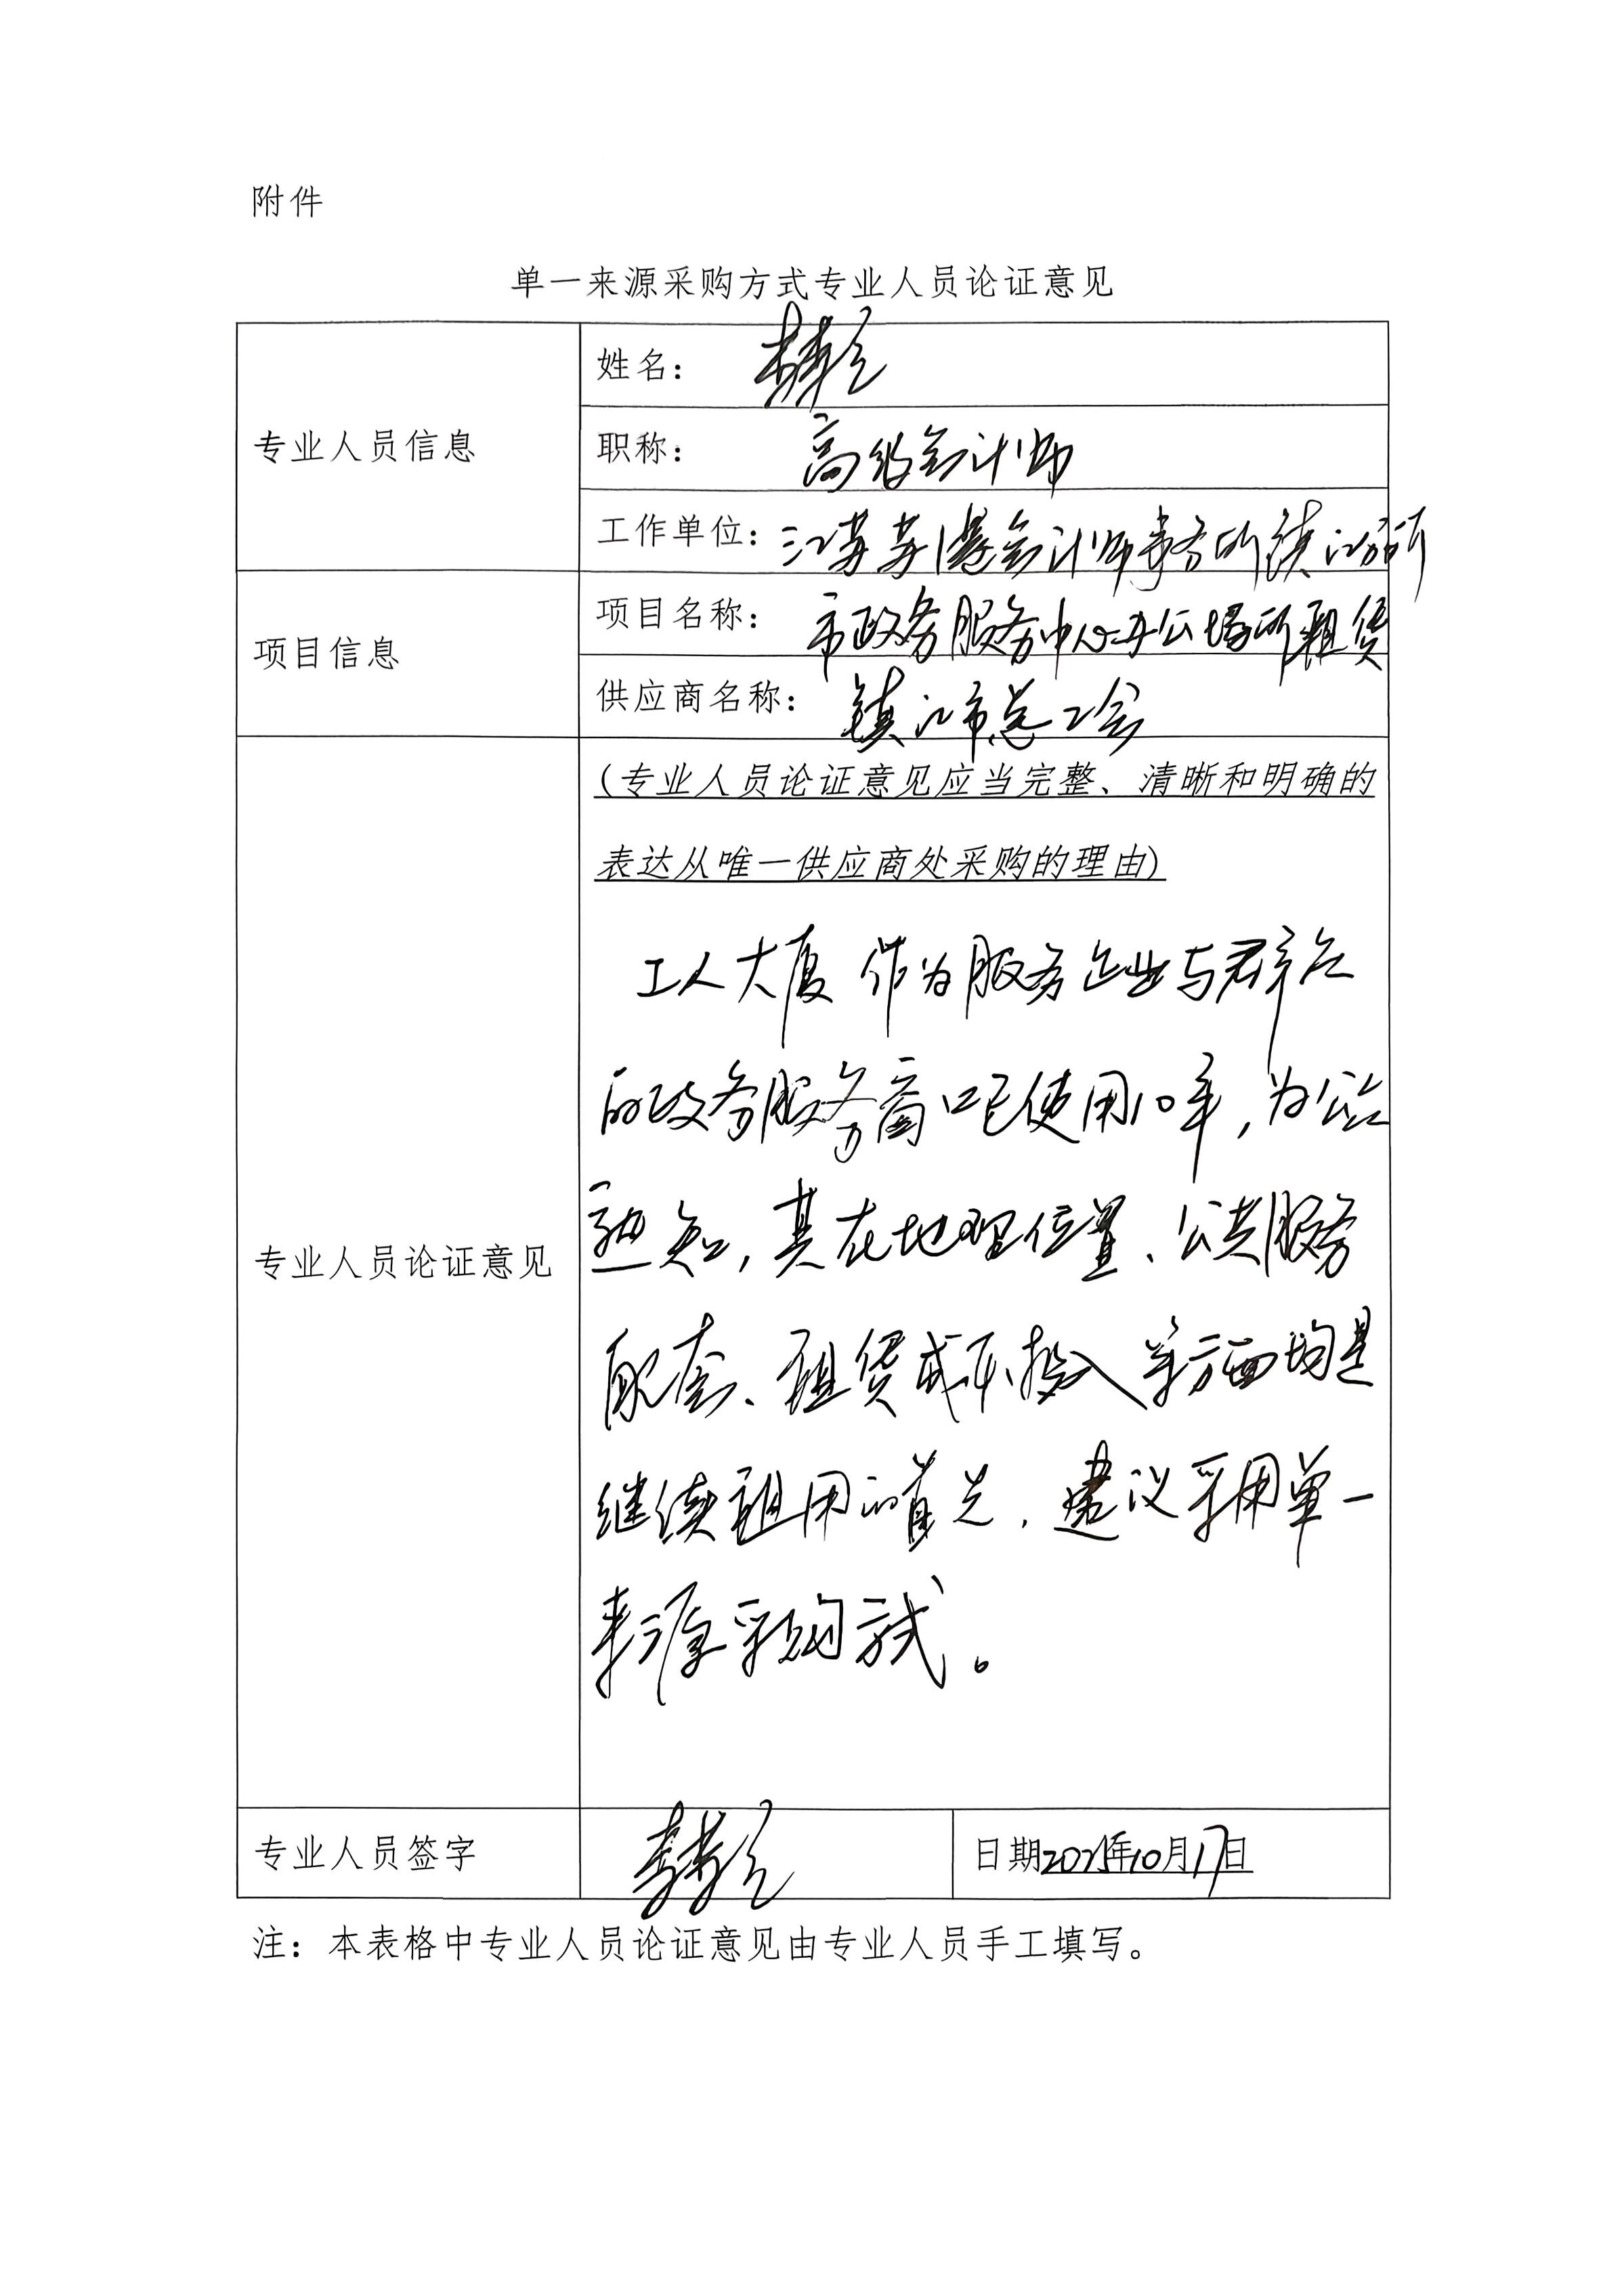 附件
单一来源采购方式专业人员论证意见
专业人员信息
姓名：
职称： 高级会计师
工作单位： 江苏苏港会计师事务所镇江分所
项目信息
项目名称： 市政务服务中心办公场所租赁
供应商名称： 镇江市总工会
专业人员论证意见
(专业人员论证意见应当完整、清晰和明确的
表达从唯一供应商处采购的理由)
工人大厦作为服务企业与群众
的政务服务窗口已使用10年，为公众
熟知，其在地理位置、公共服务
配套、租赁成本投入等方面均是
继续租用的首选，建议采用单一
来源采购方式。
专业人员签字
日期2025年10月17日
注：本表格中专业人员论证意见由专业人员手工填写。